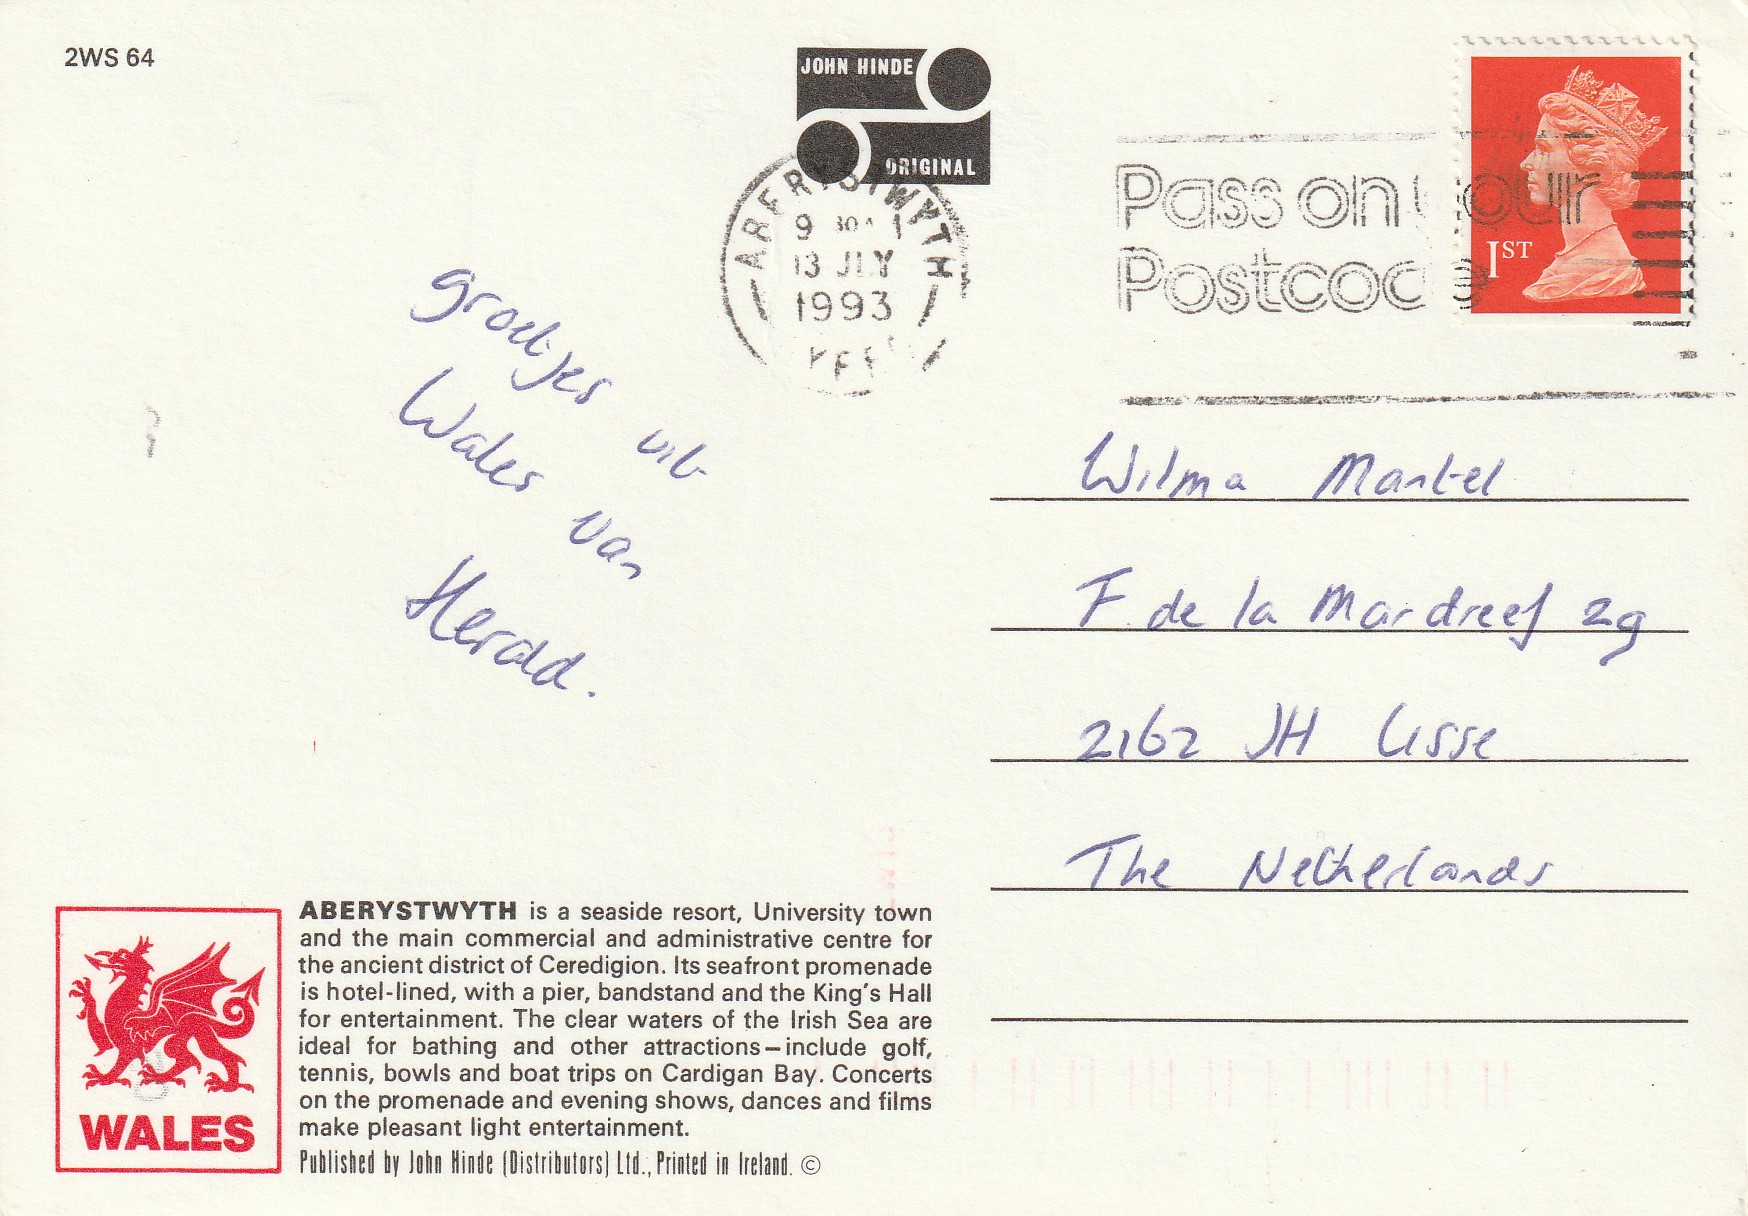 2WS 64
JOHN HINDE
ORIGINAL
ABERYSTWYTH
9 30A
13 JLY
1993
Pass on your
Postcode
1ST
groetjes uit
Wales van
Herald.
Wilma Mantel
F. de la Mardreef 29
2162 JH Lisse
The Netherlands
ABERYSTWYTH is a seaside resort, University town
and the main commercial and administrative centre for
the ancient district of Ceredigion. Its seafront promenade
is hotel-lined, with a pier, bandstand and the King's Hall
for entertainment. The clear waters of the Irish Sea are
ideal for bathing and other attractions – include golf,
tennis, bowls and boat trips on Cardigan Bay. Concerts
on the promenade and evening shows, dances and films
make pleasant light entertainment.
Published by John Hinde (Distributors) Ltd., Printed in Ireland. ©
WALES